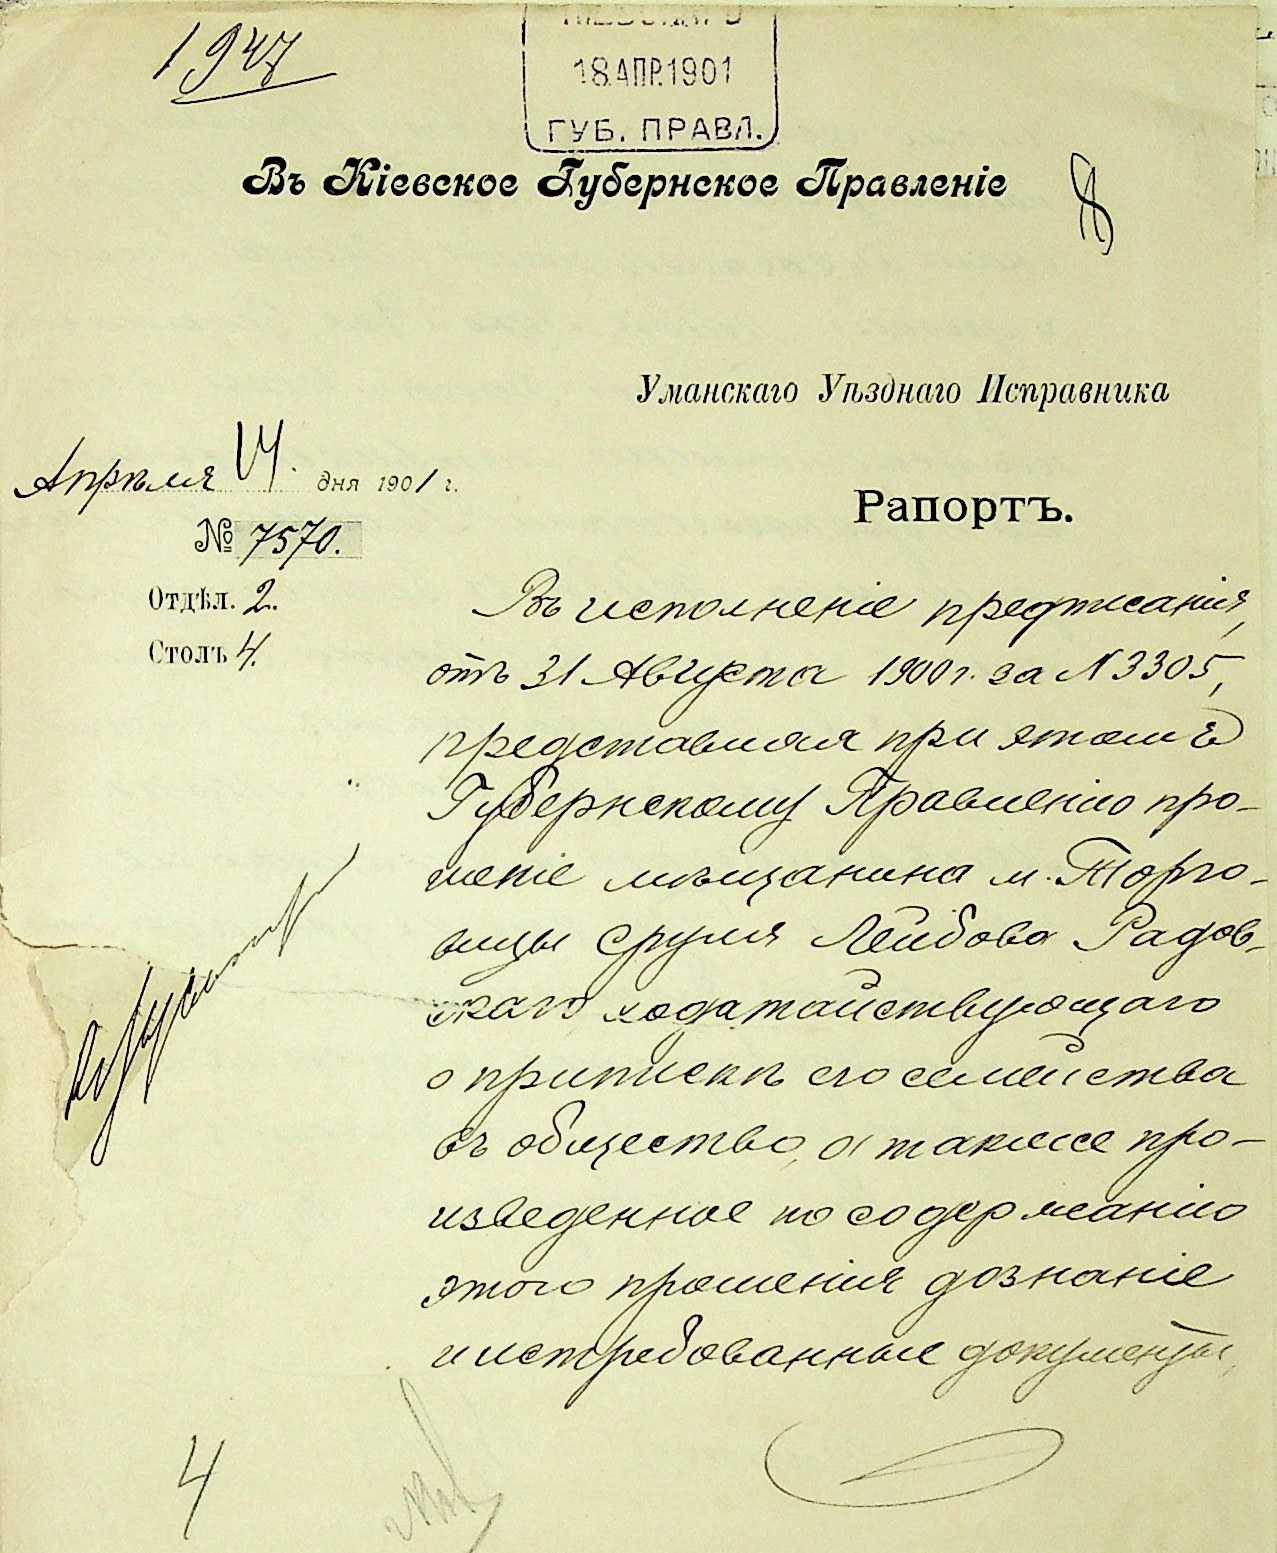 1947
18 АПР.1901
ГУБ. ПРАВЛ.
Въ Кіевское Губернское Правленіе
8
Уманскаго Уѣзднаго Исправника
Апрѣля 14 дня 1901 г.
Рапортъ.
№ 7570.
Отдѣл. 2.
Столъ 4.
Въ исполненіе предписанія,
отъ 31 Августа 1900 г. за N 3305,
представляя при этомъ
Губернскому Правленію про-
шеніе мѣщанина м. Торго-
вицы Сруля Лейбова Радов-
скаго ходатайствующаго
о припискѣ его семейства
въ общество, а также про-
изведенное по содержанію
этого прошенія дознаніе
и истребованные документы,
4